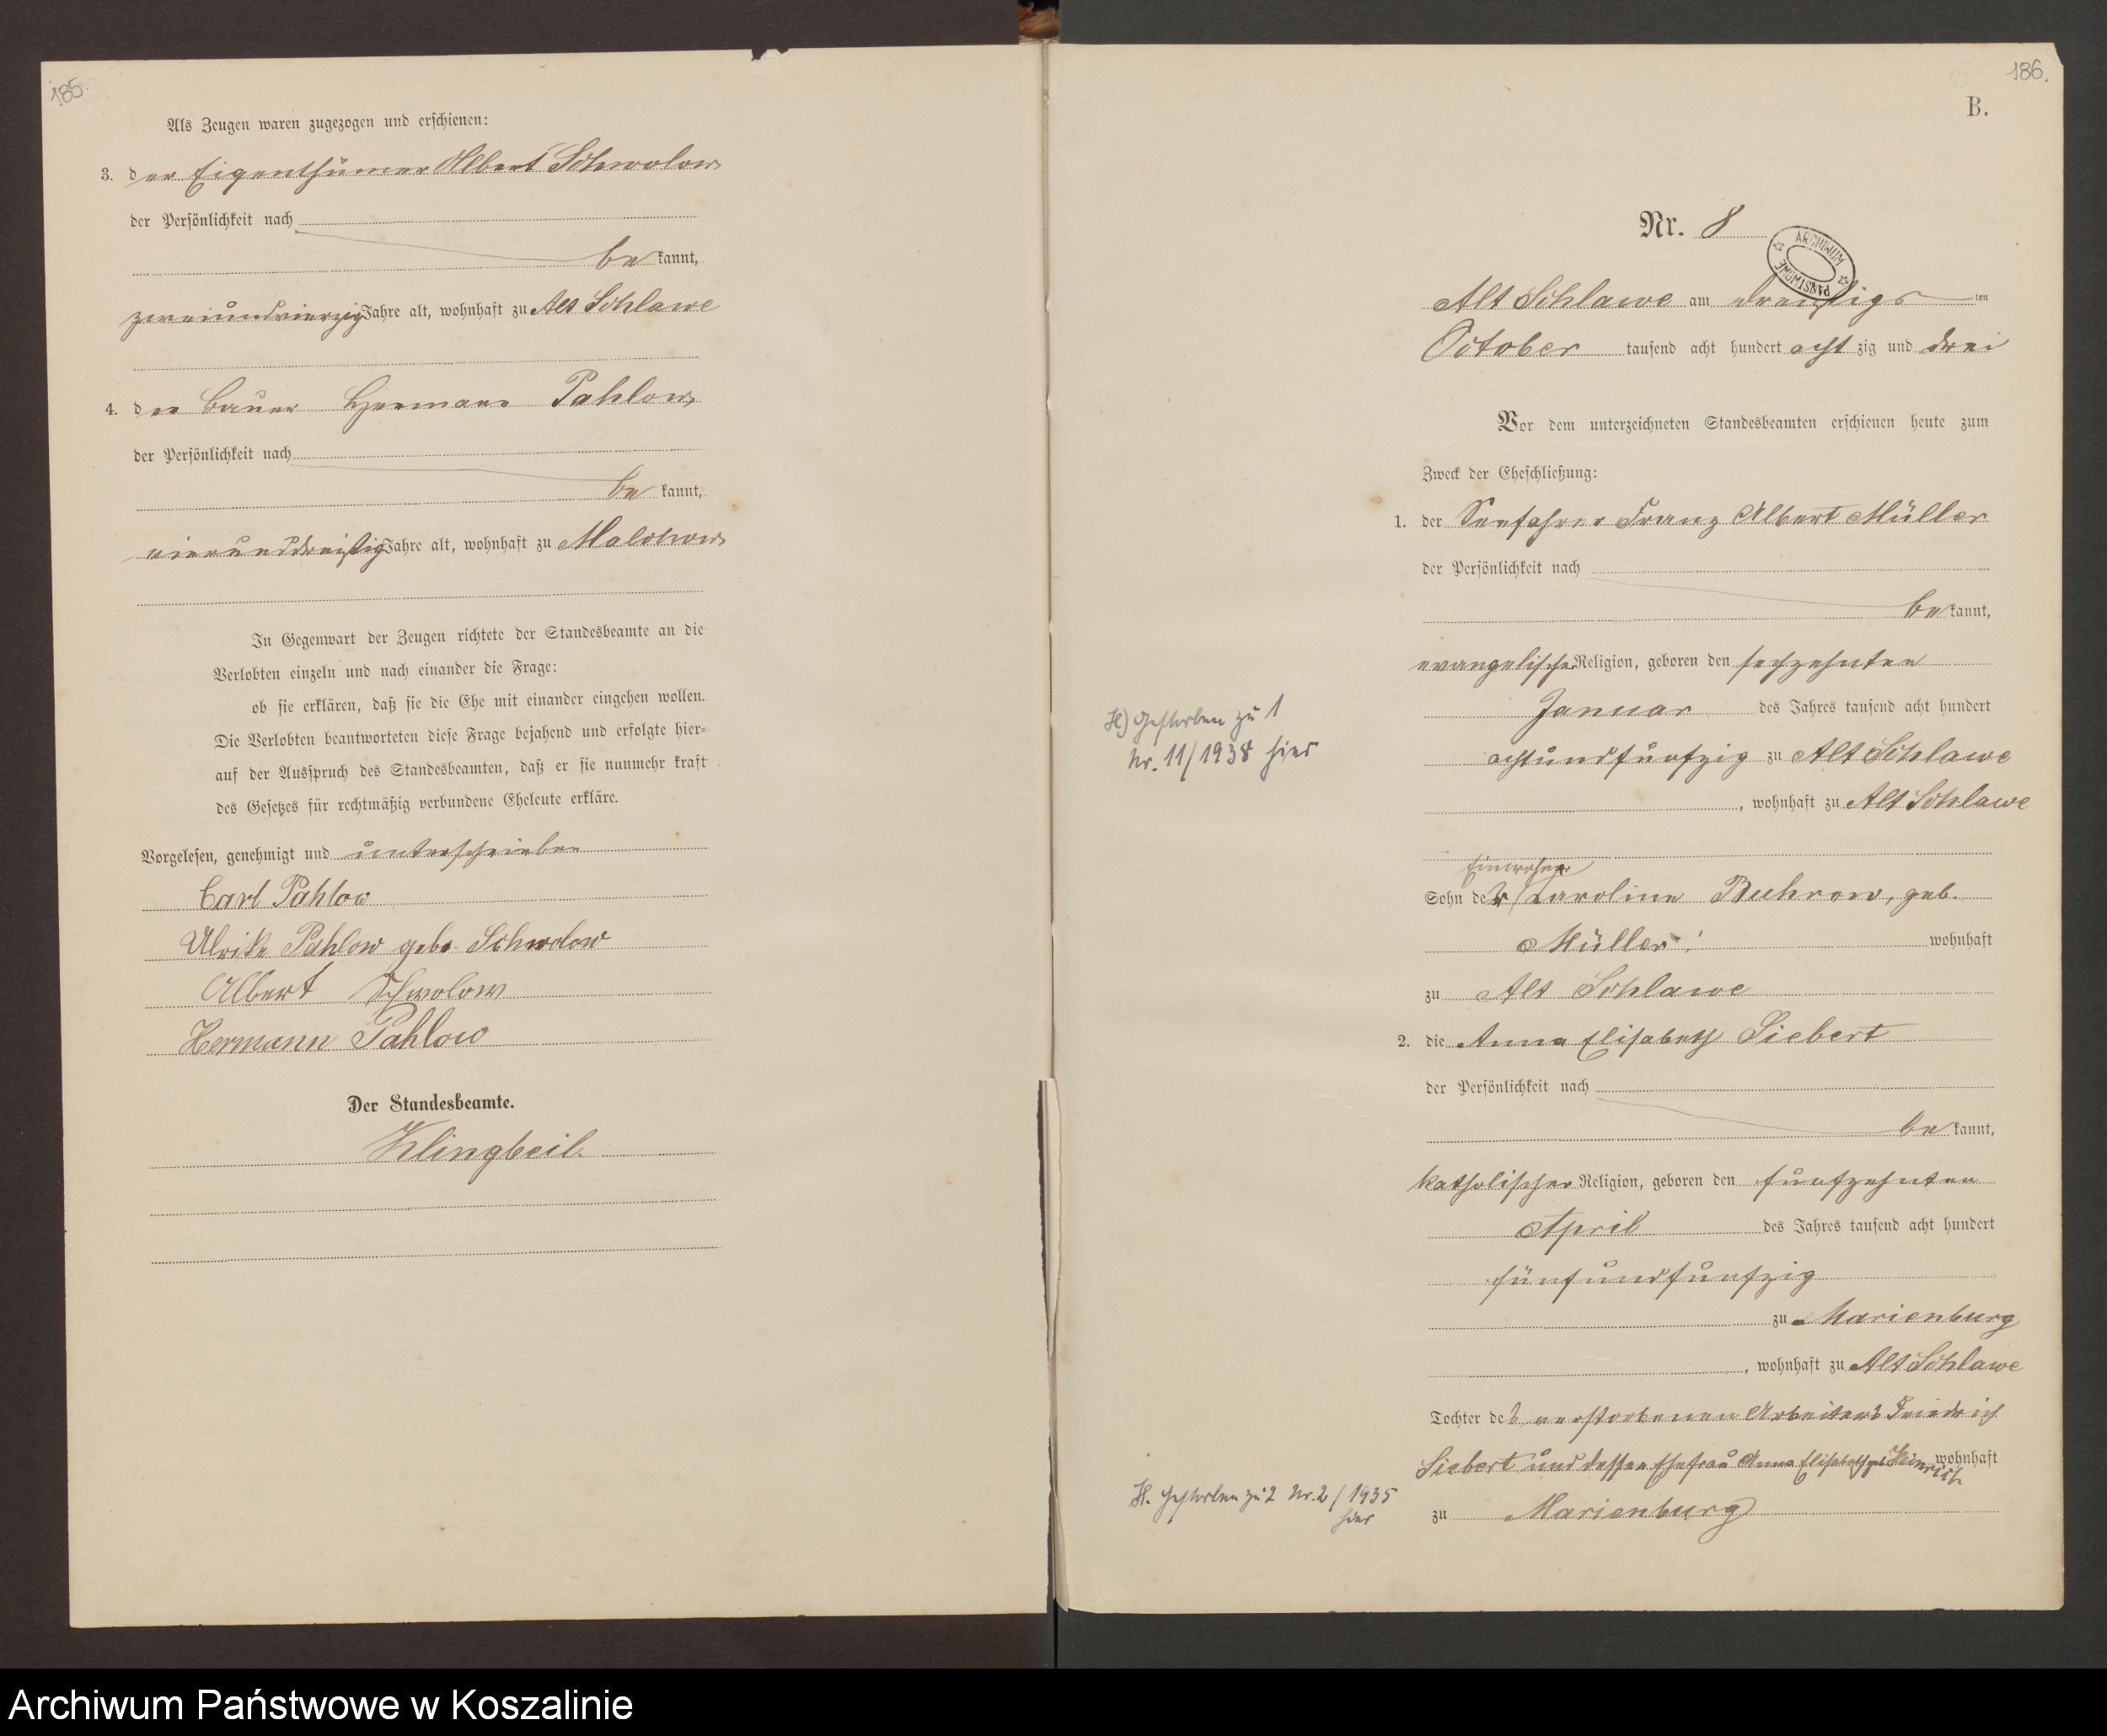 185.
Als Zeugen waren zugezogen und erschienen:
3. der Eigenthümer Albert Schwolow
der Persönlichkeit nach
be kannt,
zweiundvierzig Jahre alt, wohnhaft zu Alt Schlawe
4. der Bauer Hermann Pahlow,
der Persönlichkeit nach
be kannt,
vierunddreißig Jahre alt, wohnhaft zu Malchow
In Gegenwart der Zeugen richtete der Standesbeamte an die
Verlobten einzeln und nach einander die Frage:
ob sie erklären, daß sie die Ehe mit einander eingehen wollen.
Die Verlobten beantworteten diese Frage bejahend und erfolgte hier-
auf der Ausspruch des Standesbeamten, daß er sie nunmehr kraft
des Gesetzes für rechtmäßig verbundene Eheleute erkläre.
Vorgelesen, genehmigt und unterschrieben
Carl Pahlow
Ulrike Pahlow geb. Schwolow
Albert Schwolow
Hermann Pahlow
Der Standesbeamte.
Klingbeil.
186.
B.
Nr. 8
ARCHIWUM PAŃSTWOWE
Alt Schlawe am dreißigsten
October tausend acht hundert acht zig und drei
Vor dem unterzeichneten Standesbeamten erschienen heute zum
Zweck der Eheschließung:
1. der Seefahrer Franz Albert Müller
der Persönlichkeit nach
be kannt,
evangelischer Religion, geboren den sechzehnten
Januar des Jahres tausend acht hundert
achtundfünfzig zu Alt Schlawe
, wohnhaft zu Alt Schlawe
H) Gestorben zu 1
Nr. 11/1938 hier
Einwohner
Sohn der Caroline Buhrow, geb.
Müller wohnhaft
zu Alt Schlawe
2. die Anna Elisabeth Siebert
der Persönlichkeit nach
be kannt,
katholischer Religion, geboren den fünfzehnten
April des Jahres tausend acht hundert
fünfundfünfzig
zu Marienburg
, wohnhaft zu Alt Schlawe
Tochter des verstorbenen Arbeiters Friedrich
Siebert und dessen Ehefrau Anna Elisabeth geb. Heinrich wohnhaft
zu Marienburg
H. Gestorben zu 2 Nr. 2/1935
hier
Archiwum Państwowe w Koszalinie